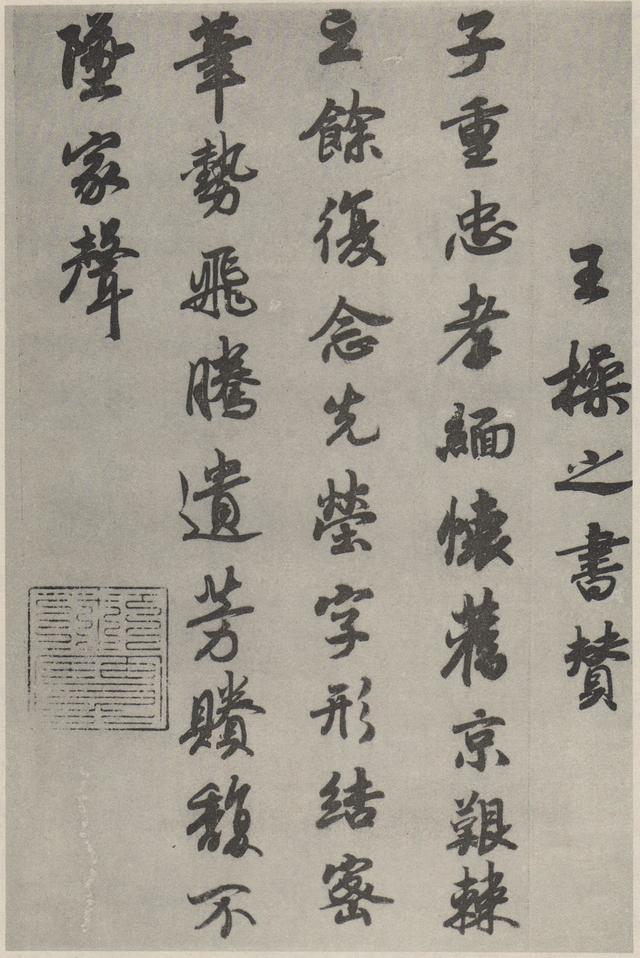 王操之書贊
子重忠孝緬懷舊京艱棘
之餘復念先塋字形結密
筆勢飛騰遺芳賸馥不
墜家聲